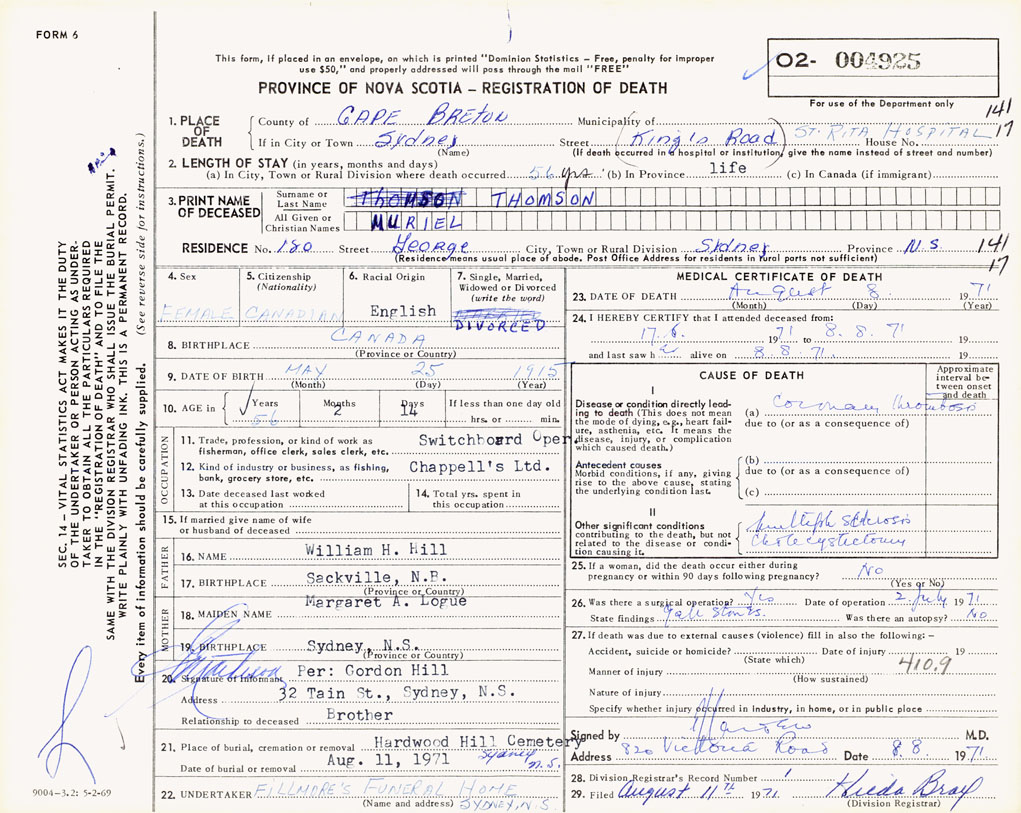 FORM 6
This form, if placed in an envelope, on which is printed "Dominion Statistics – Free, penalty for improper
use $50," and properly addressed will pass through the mail "FREE"
O2- 004925
For use of the Department only
PROVINCE OF NOVA SCOTIA – REGISTRATION OF DEATH
141
17
1. PLACE OF DEATH
County of CAPE BRETON Municipality of
If in City or Town Sydney Street King's Road ST. RITA HOSPITAL House No.
(Name) (If death occurred in a hospital or institution, give the name instead of street and number)
2. LENGTH OF STAY (in years, months and days)
(a) In City, Town or Rural Division where death occurred 56 yrs (b) In Province life (c) In Canada (if immigrant)
3. PRINT NAME OF DECEASED
Surname or Last Name THOMSON THOMSON
All Given or Christian Names MURIEL
RESIDENCE No. 180 Street George City, Town or Rural Division Sydney Province N.S. 141
(Residence means usual place of abode. Post Office Address for residents in rural parts not sufficient) 17
4. Sex FEMALE
5. Citizenship (Nationality) CANADIAN
6. Racial Origin English
7. Single, Married, Widowed or Divorced (write the word) DIVORCED
8. BIRTHPLACE CANADA
(Province or Country)
9. DATE OF BIRTH MAY 25 1915
(Month) (Day) (Year)
10. AGE in Years 56 Months 2 Days 14 If less than one day old hrs. or min.
OCCUPATION
11. Trade, profession, or kind of work as fisherman, office clerk, sales clerk, etc. Switchboard Oper.
12. Kind of industry or business, as fishing, bank, grocery store, etc. Chappell's Ltd.
13. Date deceased last worked at this occupation
14. Total yrs. spent in this occupation
15. If married give name of wife or husband of deceased
FATHER
16. NAME William H. Hill
17. BIRTHPLACE Sackville, N.B.
(Province or Country)
MOTHER
18. MAIDEN NAME Margaret A. Logue
19. BIRTHPLACE Sydney, N.S.
(Province or Country)
20. Signature of Informant Per: Gordon Hill
Address 32 Tain St., Sydney, N.S.
Relationship to deceased Brother
21. Place of burial, cremation or removal Hardwood Hill Cemetery
Date of burial or removal Aug. 11, 1971 Sydney N.S.
22. UNDERTAKER FILLMORE'S FUNERAL HOME
(Name and address) SYDNEY, N.S.
MEDICAL CERTIFICATE OF DEATH
23. DATE OF DEATH August 8 1971
(Month) (Day) (Year)
24. I HEREBY CERTIFY that I attended deceased from:
17.6. 1971 to 8.8.71 19
and last saw her alive on 8.8.71 19
CAUSE OF DEATH
Approximate interval between onset and death
I
Disease or condition directly leading to death (This does not mean the mode of dying, e.g., heart failure, asthenia, etc. It means the disease, injury, or complication which caused death.)
(a) Coronary thrombosis
due to (or as a consequence of)
Antecedent causes
Morbid conditions, if any, giving rise to the above cause, stating the underlying condition last.
(b)
due to (or as a consequence of)
(c)
II
Other significant conditions contributing to the death, but not related to the disease or condition causing it.
Multiple Sclerosis
Cholecystectomy
25. If a woman, did the death occur either during pregnancy or within 90 days following pregnancy? No
(Yes or No)
26. Was there a surgical operation? Yes Date of operation 2 July 1971
State findings Gall Stones. Was there an autopsy? No
27. If death was due to external causes (violence) fill in also the following: –
Accident, suicide or homicide? Date of injury 19
(State which)
410.9
Manner of injury
(How sustained)
Nature of injury
Specify whether injury occurred in industry, in home, or in public place
Signed by M.D.
Address 820 Victoria Road Date 8.8 1971
28. Division Registrar's Record Number 1
29. Filed August 11th 1971 Hilda Bray
(Division Registrar)
SEC. 14 – VITAL STATISTICS ACT MAKES IT THE DUTY
OF THE UNDERTAKER OR PERSON ACTING AS UNDER-
TAKER TO OBTAIN ALL THE PARTICULARS REQUIRED
IN THE "REGISTRATION OF DEATH" AND TO FILE THE
SAME WITH THE DIVISION REGISTRAR WHO SHALL ISSUE THE BURIAL PERMIT.
WRITE PLAINLY WITH UNFADING INK. THIS IS A PERMANENT RECORD.
Every item of information should be carefully supplied. (See reverse side for instructions.)
9004-3.2: 5-2-69